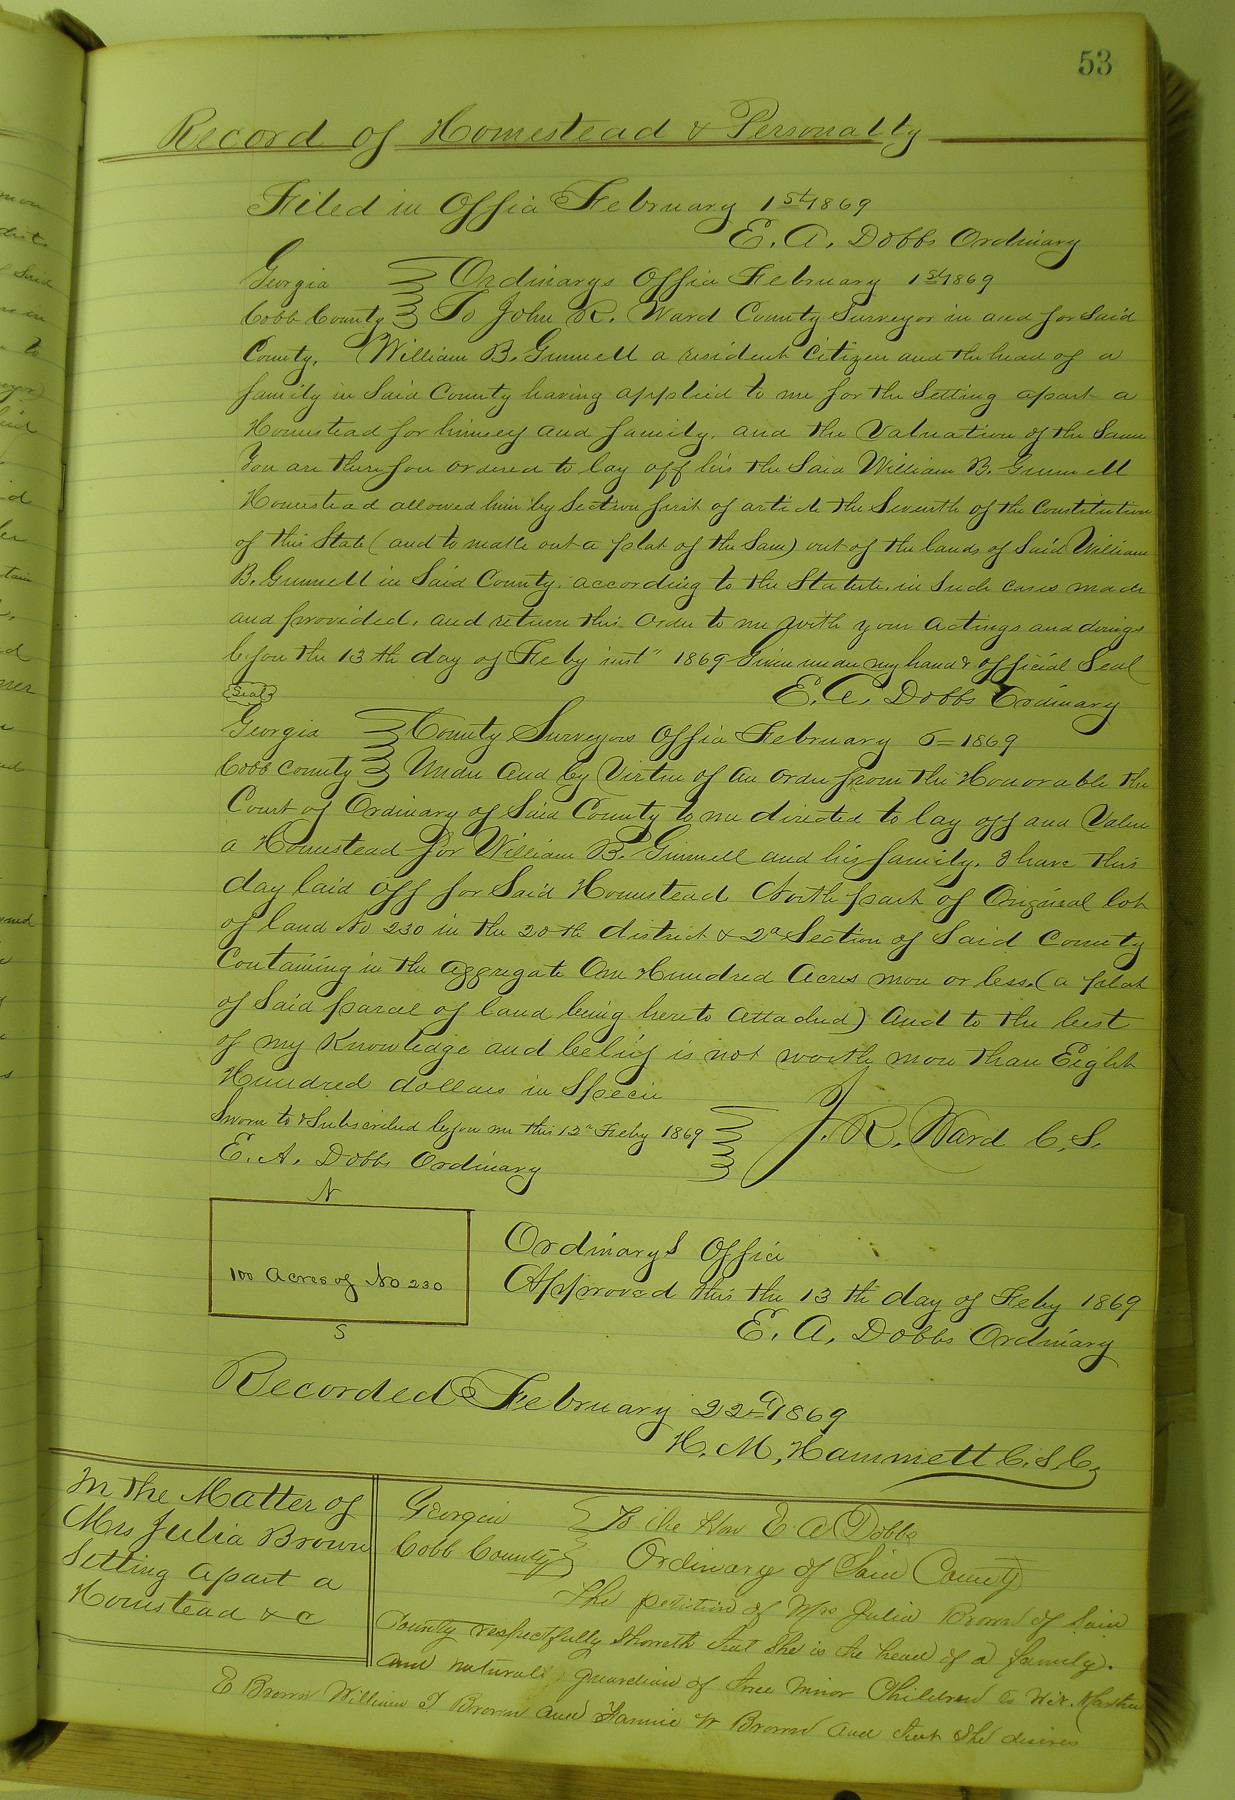 53
Record of Homestead & Personalty
Filed in Office February 1st 1869
E. A. Dobbs Ordinary
Georgia Ordinarys Office February 1st 1869
Cobb County To John R. Ward County Surveyor in and for Said
County, William B. Gunnell a resident Citizen and the head of a
family in Said County having applied to me for the Setting apart a
Homestead for himself and family, and the Valuation of the Same
You are therefore ordered to lay off his the Said William B. Gunnell
Homestead allowed him by Section first of article the Seventh of the Constitution
of this State (and to make out a plat of the Same) out of the lands of Said William
B. Gunnell in Said County, according to the Statute, in Such cases made
and provided, and return this order to me with your actings and doings
before the 13th day of Feby inst" 1869 Given under my hand & official Seal
Seal
E. A. Dobbs Ordinary
Georgia County Surveyors Office February 5 1869
Cobb County Under and by Virtue of an order from the Honorable the
Court of Ordinary of Said County to me directed to lay off and Value
a Homestead for William B. Gunnell and his family. I have this
day laid off for Said Homestead North part of Original lot
of land No 230 in the 20th district & 2d Section of Said County
Containing in the aggregate One Hundred Acres more or less. (a plat
of Said parcel of land being hereto attached) and to the best
of my Knowledge and belief is not worth more than Eight
Hundred dollars in Specie
Sworn to & Subscribed before me this 12th Feby 1869 J. R. Ward C. S.
E. A. Dobbs Ordinary
N
100 Acres of No 230
S
Ordinarys Office
Approved this the 13th day of Feby 1869
E. A. Dobbs Ordinary
Recorded February 22nd 1869
H. M. Hammett C. S. C.
In the Matter of
Mrs Julia Brown
Setting apart a
Homestead & c
Georgia To the Hon E A Dobbs
Cobb County Ordinary of Said County
The petition of Mrs Julia Brown of Said
County respectfully Showeth that She is the head of a family.
and natural guardian of three minor Children to Wit. Martha
E Brown William T Brown and Fannie W Brown and that She desires